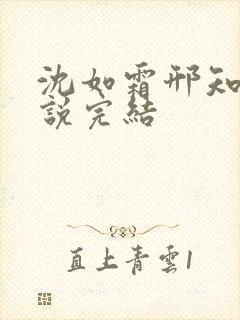 沈如霜邢知
說完結
直上青雲1